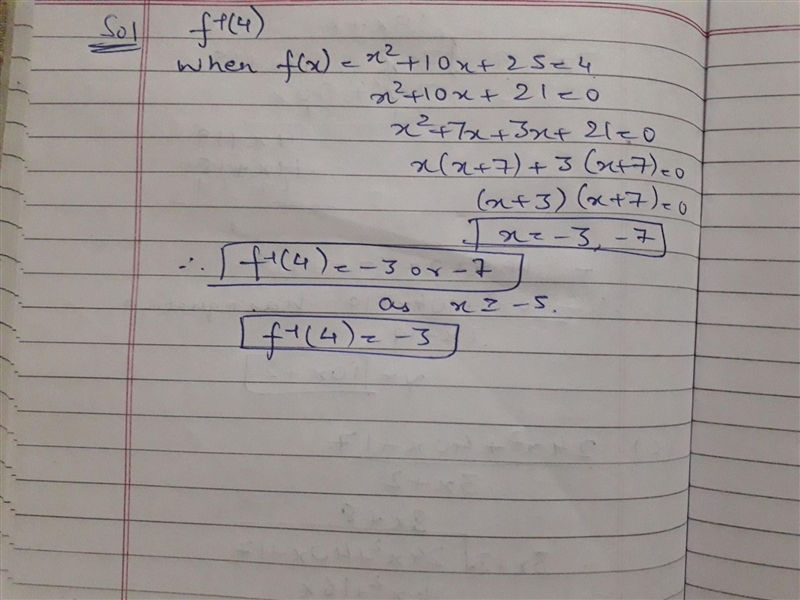 Sol f⁻¹(4)
when f(x) = x² + 10x + 25 = 4
x² + 10x + 21 = 0
x² + 7x + 3x + 21 = 0
x(x+7) + 3(x+7) = 0
(x+3)(x+7) = 0
x = -3, -7
∴ f⁻¹(4) = -3 or -7
as x ≥ -5.
f⁻¹(4) = -3